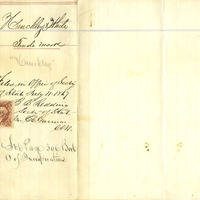 Hinckley & White
Trade mark
"Hinckley"
Filed in Office of Secty
of State July 11 1867
B. B. Redding
Secty of State
See Page 306 Book